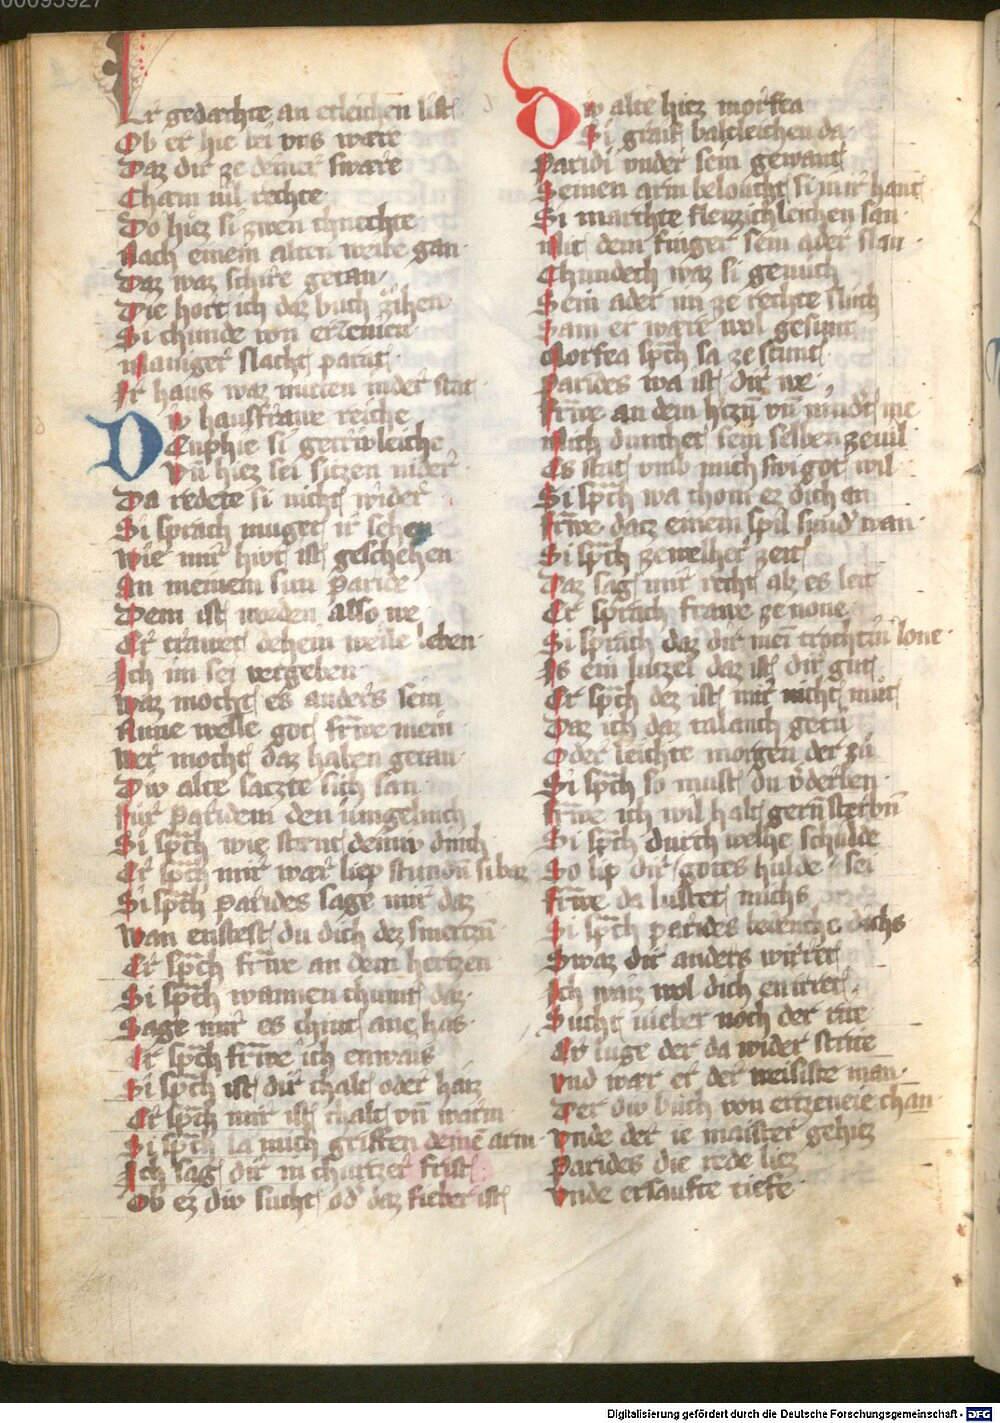 00095927
Er gedachte an etleichen list
Ob er hie bei vns ware
Daz dir ze deiner sware
Cham vil rechte
Do hiez si zwen chnechte
Nach einem alten weibe gan
Daz waz schire getan
Die hort ich daz buch zihen
Si chunde von ertzenien
Maniger slacht parat
Ir haus waz mitten in der stat
Diw hausfrawe reiche
Enphie si getriwleiche
Vn̄ hiez sei sitzen nider
Da redete si nicht wider
Si sprach muget ir sehen
Wie mir hivt ist geschehen
An meinem sun paride
Dem ist worden also we
Er trawet dehein weile leben
Ich im sei vergeben
Waz mocht es anders sein
Anne welle got frawe mein
Wer mocht daz haben getan
Diw alte satzte sich san
Fur paridem den iungelinch
Si sp̄ch wie stent deiniv dinch
Er sp̄ch mir war liep stunden si baz
Si sp̄ch parides sage mir daz
Wan enstest du dich dez smertzn̄
Er sp̄ch frawe an dem hertzen
Si sp̄ch wannen chumt daz
Sage mir es chint ane has
Er sp̄ch frawe ich enwais
Si sp̄ch ist dir chalt oder haiz
Er sp̄ch mir ist chalt vn̄ warm
Si sp̄ch la mich griffen deinē arm
Ich sag dir in churtzer frist
Ob ez diw sucht od daz fieber ist
Diw alte hiez morfea
Si graif balcleichen da
Paridi vnder sein gewant
Seinen arm beloucht si mir hant
Si marchte fleizzichleichen san
Mit dem finger sein ader slan
Chundech waz si genuch
Sein ader im ze rechte sluch
Sam er ware wol gesunt
Morfea sp̄ch sa ze stunt
Parides wa ist dir we
Frawe an dem hizn̄ vn̄ nindr̄t me
Mich dunchet sein selben zeuil
Es stat vmb mich swi got wil
Si sp̄ch wa chom ez dich an
Frawe datz einem spil sund' wan
Si sp̄ch zewelher zeit
Daz sag mir recht alz es leit
Er sprach frawe ze none
Si sprach daz dir mei trochtin lone
Is ein lutzel daz ist dir gut
Er sp̄ch dez ist mir nicht mut
Daz ich daz talanch getu
Oder leichte morgen der zu
Si sp̄ch so must du v̄derben
Frawe ich wil halt gern̄ sterbn̄
Si sp̄ch durch welhe schulde
So lip dir gotes hulde sei
Frawe da lustet michs
Si sp̄ch parides bedenche dichs
Swaz dir anders wirret
Ich waiz wol dich enirret
Sucht nieber noch der rite
Er luge der da wider strite
Vnd war er der weisiste man
Der diw buch von ertzeneie chan
Vnde der ie maister gehiez
Parides die rede liez
Vnde ersaufte tiefe
Digitalisierung gefördert durch die Deutsche Forschungsgemeinschaft - DFG